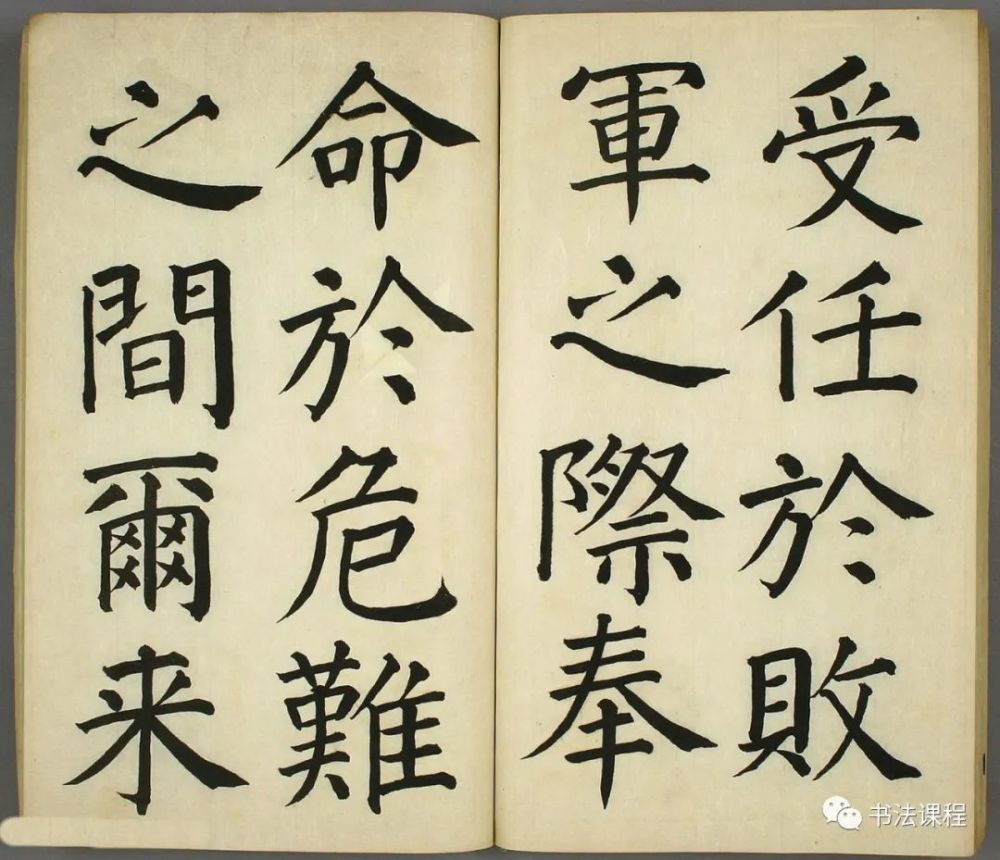 受任於敗
軍之際奉
命於危難
之間爾来
书法课程